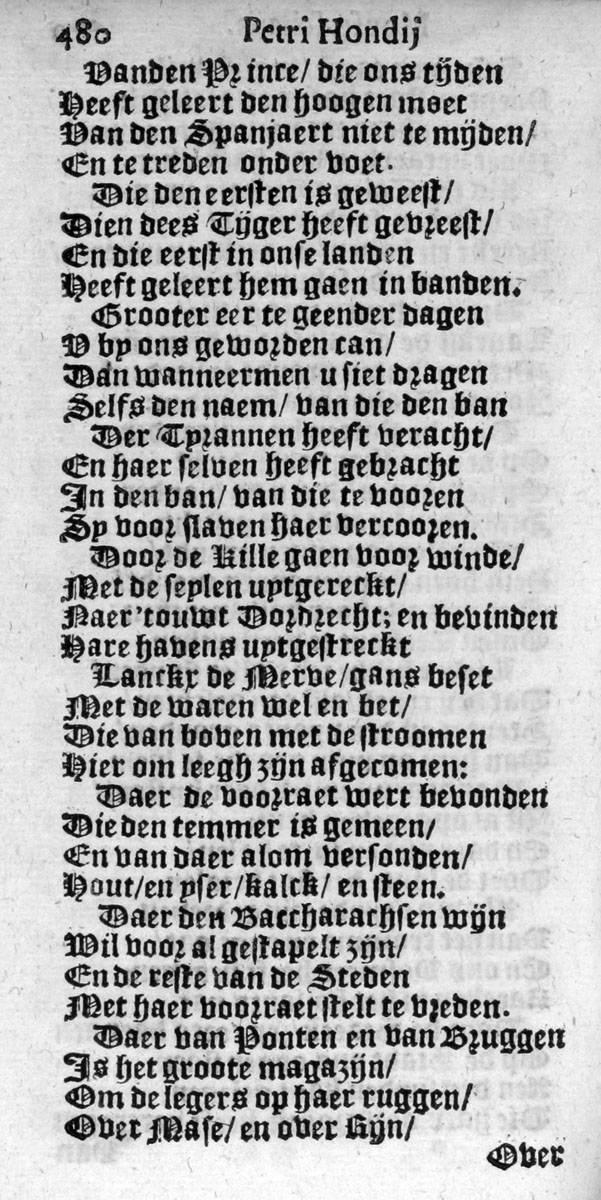 480 Petri Hondij
Vanden Prince/ die ons tijden
Heeft geleert den hoogen moet
Van den Spanjaert niet te mijden/
En te treden onder voet.
Die den eersten is geweest/
Dien dees Tijger heeft gevreest/
En die eerst in onse landen
Heeft geleert hem gaen in banden.
Grooter eer te geender dagen
V by ons geworden can/
Dan wanneermen u siet dragen
Selfs den naem/ van die den ban
Der Tyrannen heeft veracht/
En haer selven heeft gebracht
In den ban/ van die te vooren
Sy voor slaven haer vercooren.
Door de Kille gaen voor winde/
Met de seylen uytgereckt/
Naer 'touwt Dordrecht; en bevinden
Hare havens uytgestreckt
Lanckx de Merve/gans beset
Met de waren wel en bet/
Die van boven met de stroomen
Hier om leegh zijn afgecomen:
Daer de voorraet wert bevonden
Die den temmer is gemeen/
En van daer alom versonden/
Hout/en yser/kalck/ en steen.
Daer den Baccharachsen wijn
Wil voor al gestapelt zijn/
En de reste van de Steden
Met haer voorraet stelt te vreden.
Daer van Ponten en van Bruggen
Is het groote magazijn/
Om de legers op haer ruggen/
Over Mase/ en over Rijn/
Over